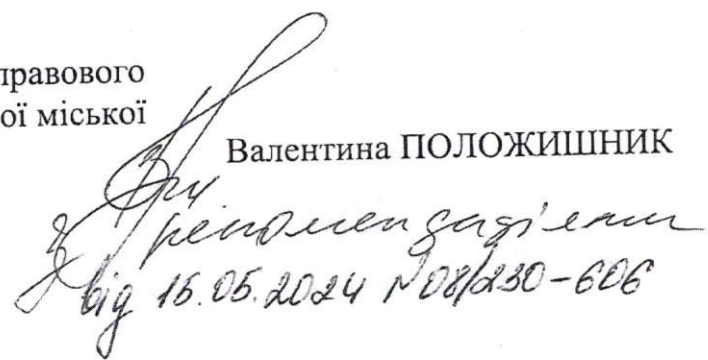 правового
ої міської
Валентина ПОЛОЖИШНИК
З рекомендаціями
від 15.05.2024 №08/230-606